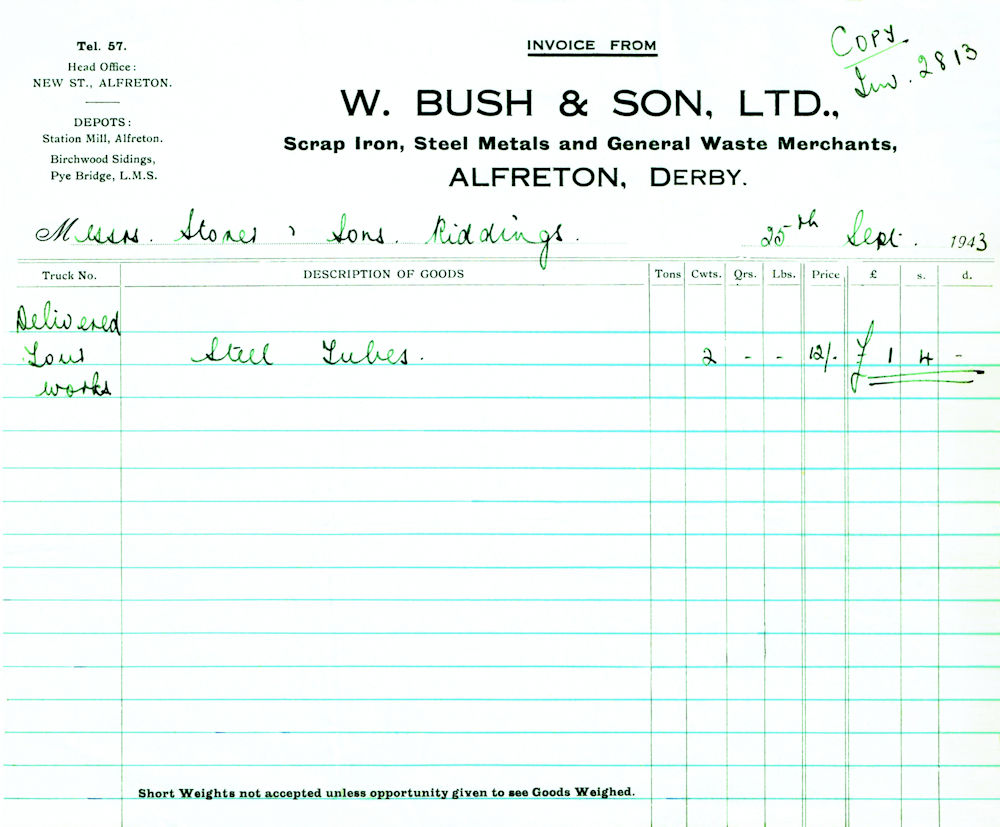 Tel. 57.
Head Office:
NEW ST., ALFRETON.
DEPOTS:
Station Mill, Alfreton.
Birchwood Sidings,
Pye Bridge, L.M.S.
INVOICE FROM
W. BUSH & SON, LTD.,
Scrap Iron, Steel Metals and General Waste Merchants,
ALFRETON, DERBY.
Copy.
Inv. 2813
Messrs. Stones & Sons. Riddings. 25th Sept. 1943
Truck No. DESCRIPTION OF GOODS Tons Cwts. Qrs. Lbs. Price £ s. d.
Delivered
Your Steel Tubes. 2 - - 12/- £ 1 4 -
works
Short Weights not accepted unless opportunity given to see Goods Weighed.